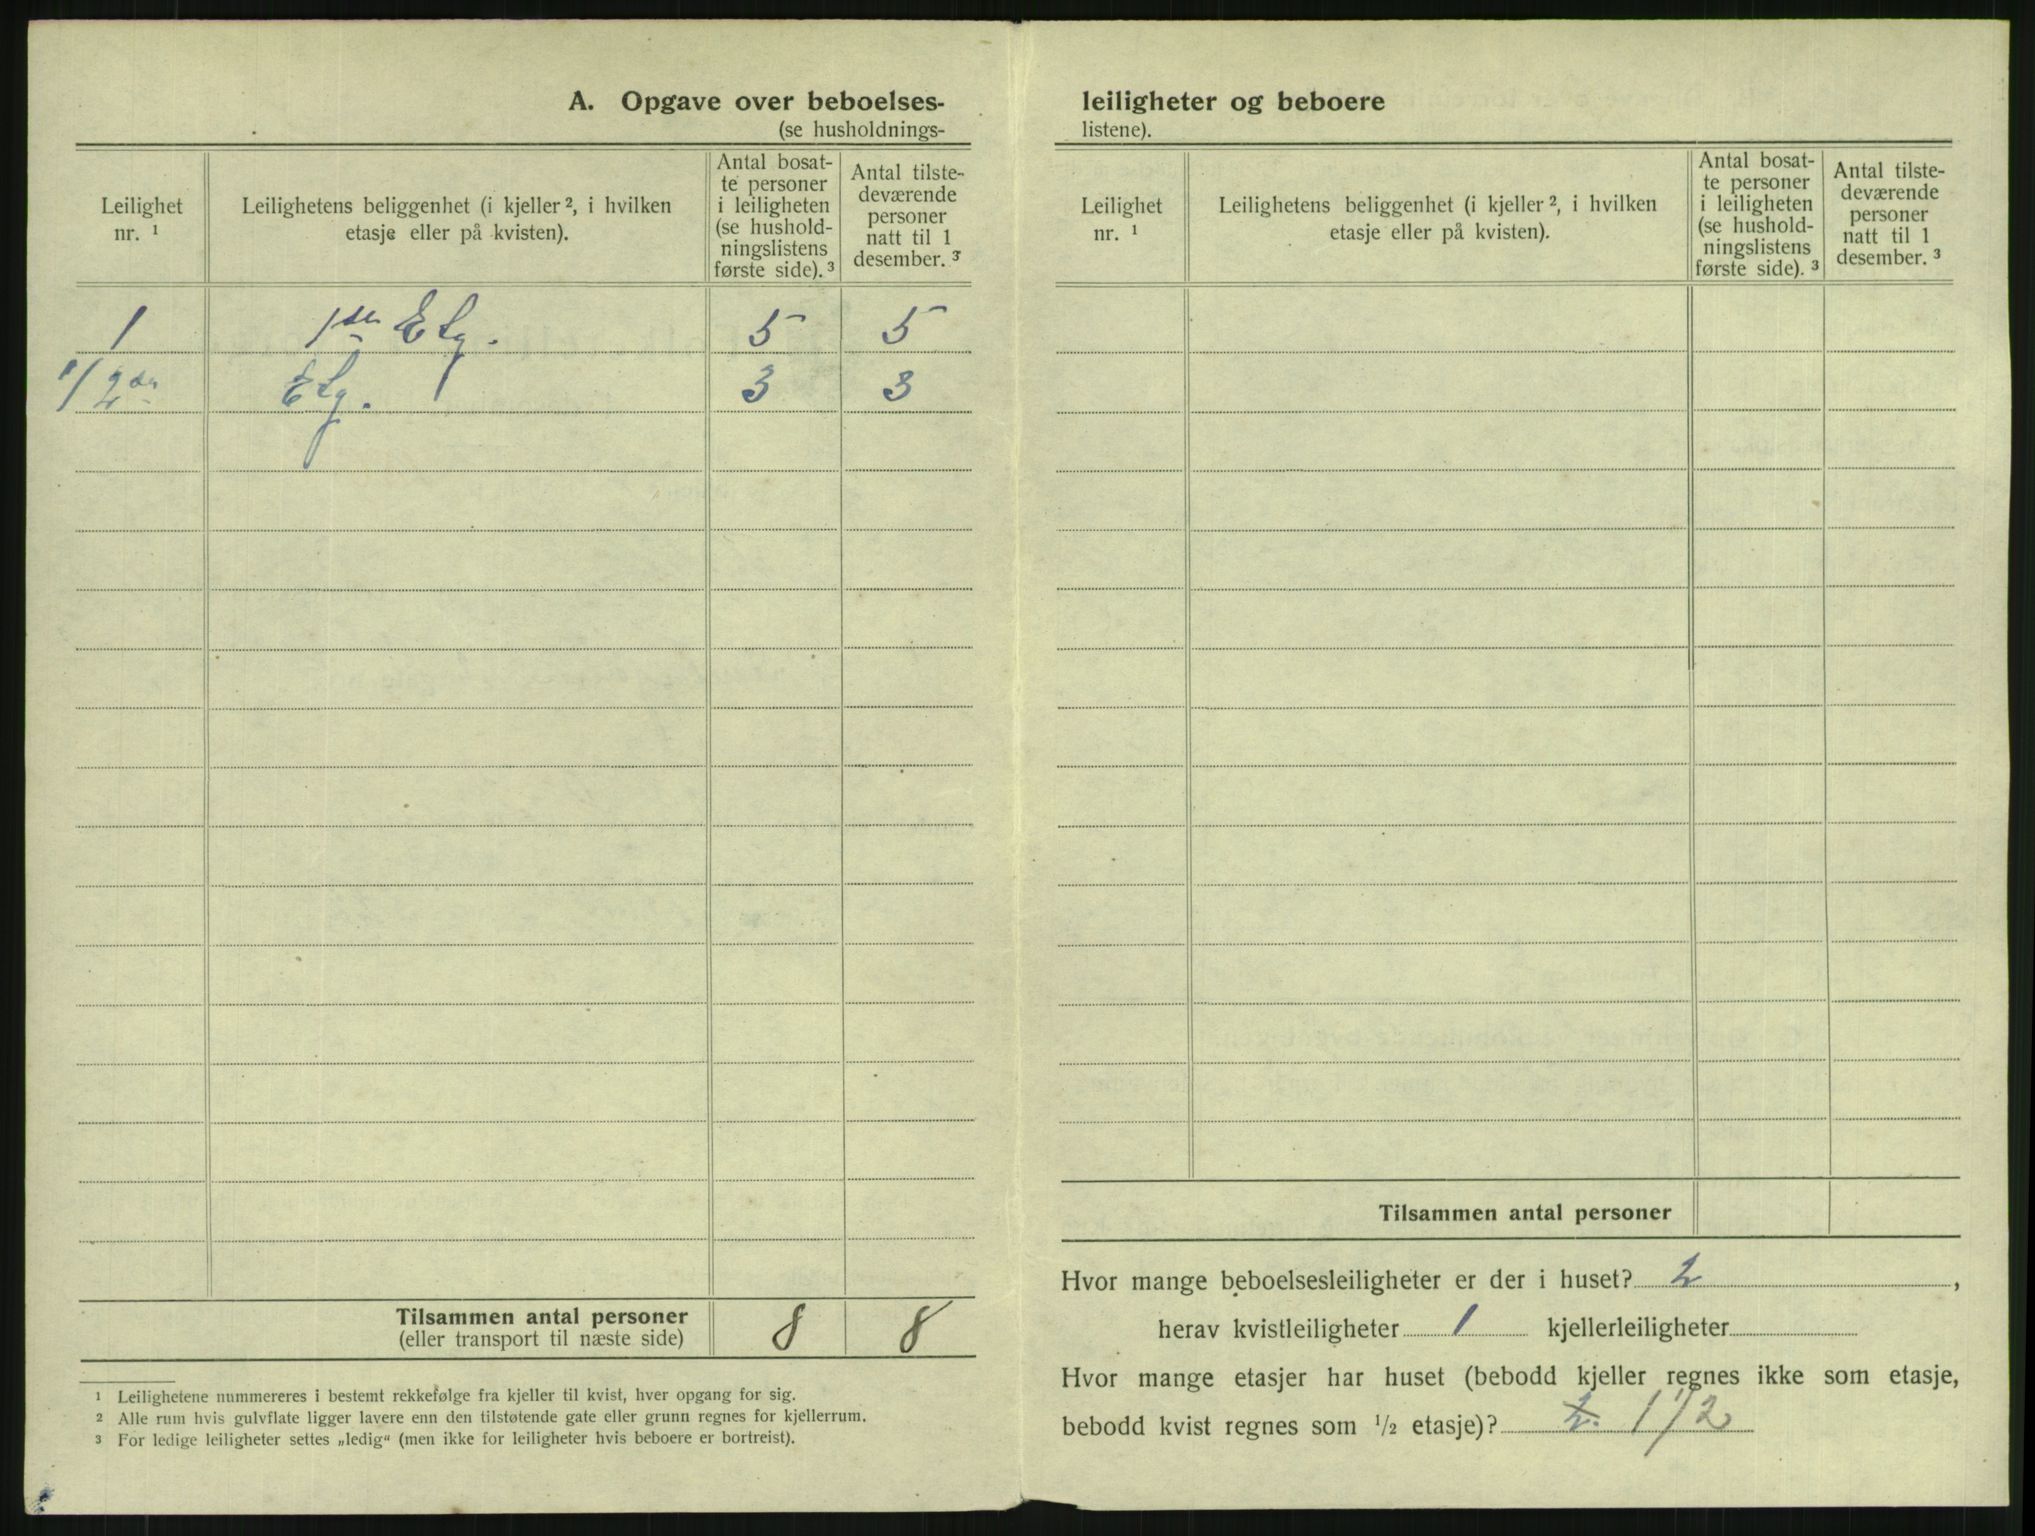 A. Opgave over beboelses-
(se husholdnings-
Leilighet
nr. ¹
Leilighetens beliggenhet (i kjeller ², i hvilken
etasje eller på kvisten).
Antal bosat-
te personer
i leiligheten
(se hushold-
ningslistens
første side). ³
Antal tilste-
deværende
personer
natt til 1
desember. ³
1 1ste Etg. 5 5
1/2 Etg. 3 3
Tilsammen antal personer 8 8
(eller transport til næste side)
¹ Leilighetene nummereres i bestemt rekkefølge fra kjeller til kvist, hver opgang for sig.
² Alle rum hvis gulvflate ligger lavere enn den tilstøtende gate eller grunn regnes for kjellerrum.
³ For ledige leiligheter settes „ledig“ (men ikke for leiligheter hvis beboere er bortreist).
leiligheter og beboere
listene).
Leilighet
nr. ¹
Leilighetens beliggenhet (i kjeller ², i hvilken
etasje eller på kvisten).
Antal bosat-
te personer
i leiligheten
(se hushold-
ningslistens
første side). ³
Antal tilste-
deværende
personer
natt til 1
desember. ³
Tilsammen antal personer
Hvor mange beboelsesleiligheter er der i huset? 2 ,
herav kvistleiligheter 1 kjellerleiligheter
Hvor mange etasjer har huset (bebodd kjeller regnes ikke som etasje,
bebodd kvist regnes som ½ etasje)? 2. 1 1/2